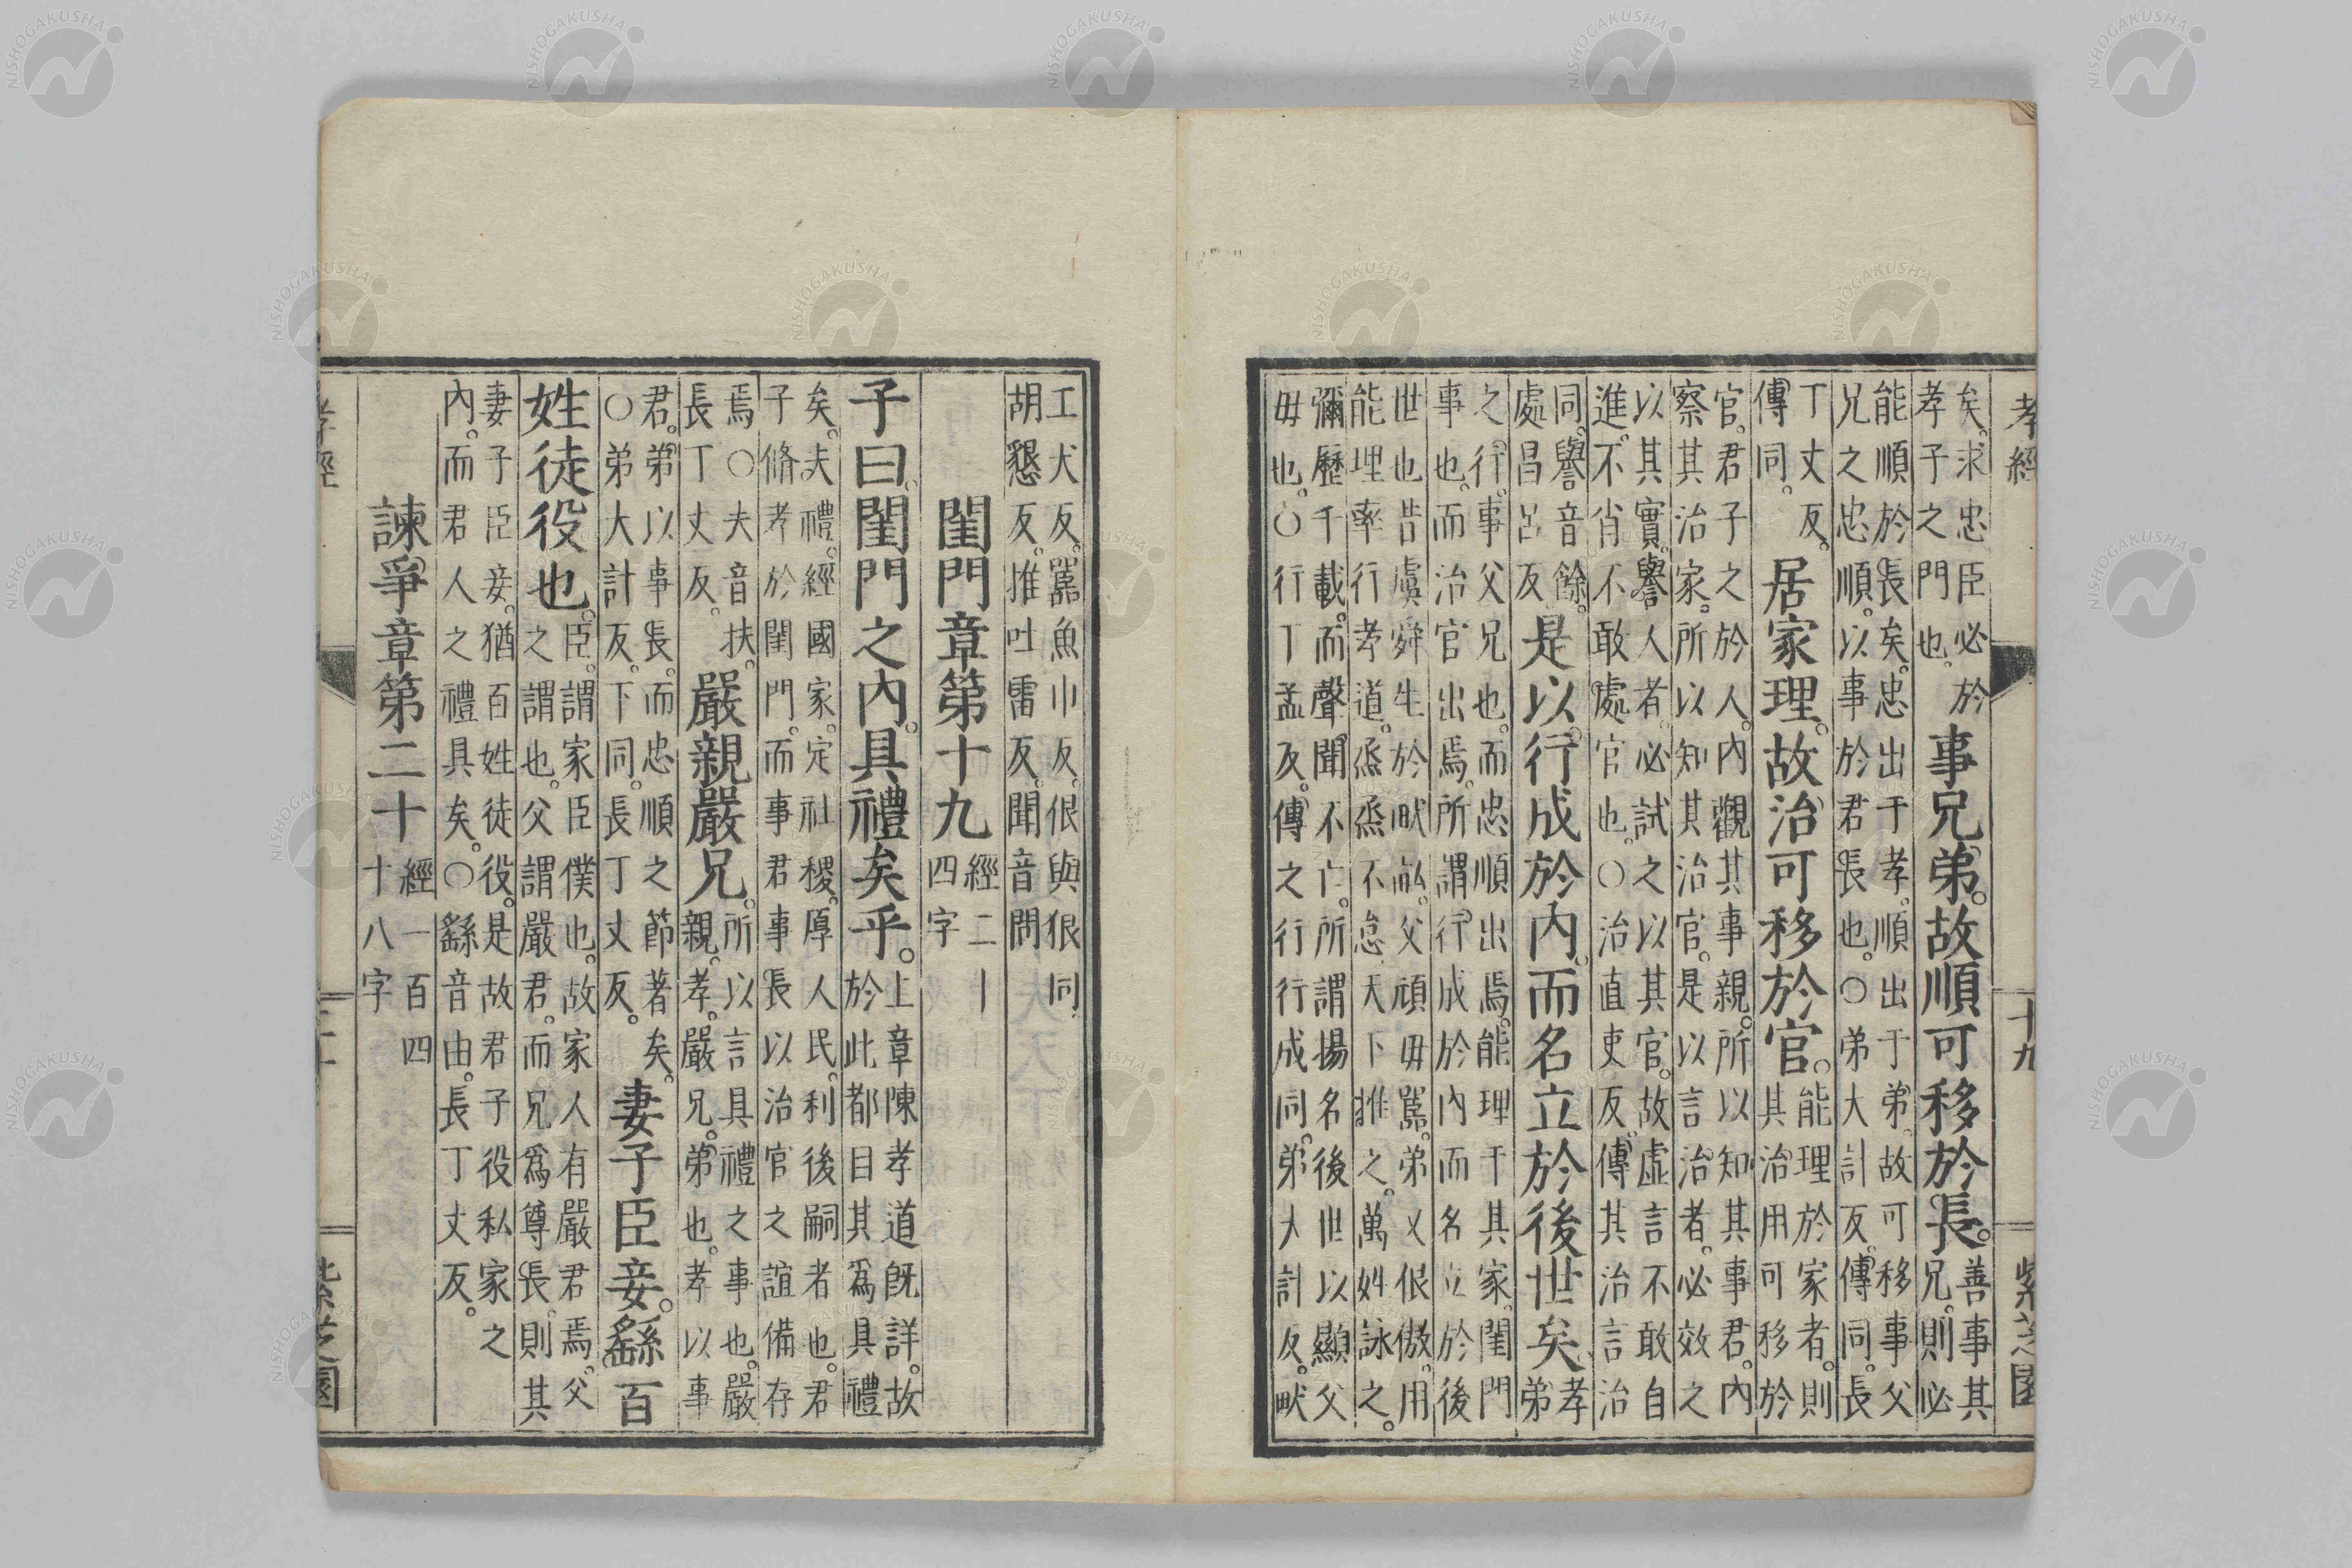 孝經 十九 紫芝園
矣。求忠臣必於
孝子之門也。
事兄弟。故順可移於長。
善事其
兄。則必
能順於長矣。忠出于孝。順出于弟。故可移事父
兄之忠順。以事於君長也。○弟大計反。傳同。長
丁丈反。
傳同。
居家理。故治可移於官。
能理於家者。則
其治用可移於
官。君子之於人。內觀其事親。所以知其事君。內
察其治家。所以知其治官。是以言治者。必效之
以其實。譽人者。必試之以其官。故虛言不敢自
進。不肖不敢處官也。○治直吏反。傳其治言治
同。譽音餘。
處昌呂反
是以。行成於內。而名立於後世矣。
孝
弟
之行。事父兄也。而忠順出焉。能理于其家。閨門
事也。而治官出焉。所謂行成於內而名立於後
世也昔虞舜生於畎畝。父頑毋嚚。弟乂佷傲。用
能理率行孝道。烝烝不怠。天下推之。萬姓詠之。
彌歷千載。而聲聞不亡。所謂揚名後世以顯父
毋也。○行丁孟反。傳之行行成同。弟大計反。畎
工犬反。嚚魚巾反。佷與狠同
胡懇反。推吐雷反。聞音問
閨門章第十九
經二十
四字
子曰。閨門之內。具禮矣乎。
上章陳孝道既詳。故
於此都目其爲具禮
矣。夫禮。經國家。定社稷。厚人民。利後嗣者也。君
子脩孝於閨門。而事君事長以治官之誼備存
焉○夫音扶。
長丁丈反。
嚴親嚴兄。
所以言具禮之事也。嚴
親。孝。嚴兄。弟也。孝以事
君。弟以事長。而忠順之節著矣。
○弟大計反。下同。長丁丈反。
妻子臣妾。繇百
姓徒役也。
臣。謂家臣僕也。故家人有嚴君焉。父
之謂也。父謂嚴君。而兄爲尊長。則其
妻子臣妾。猶百姓徒役。是故君子役私家之
內。而君人之禮具矣。○繇音由。長丁丈反。
諫爭章第二十
經一百四
十八字
孝經 二十 紫芝園